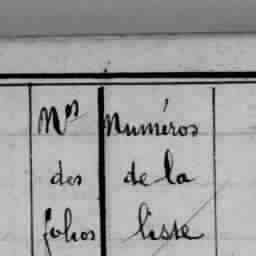 Nos
des
folios
Numéros
de la
liste